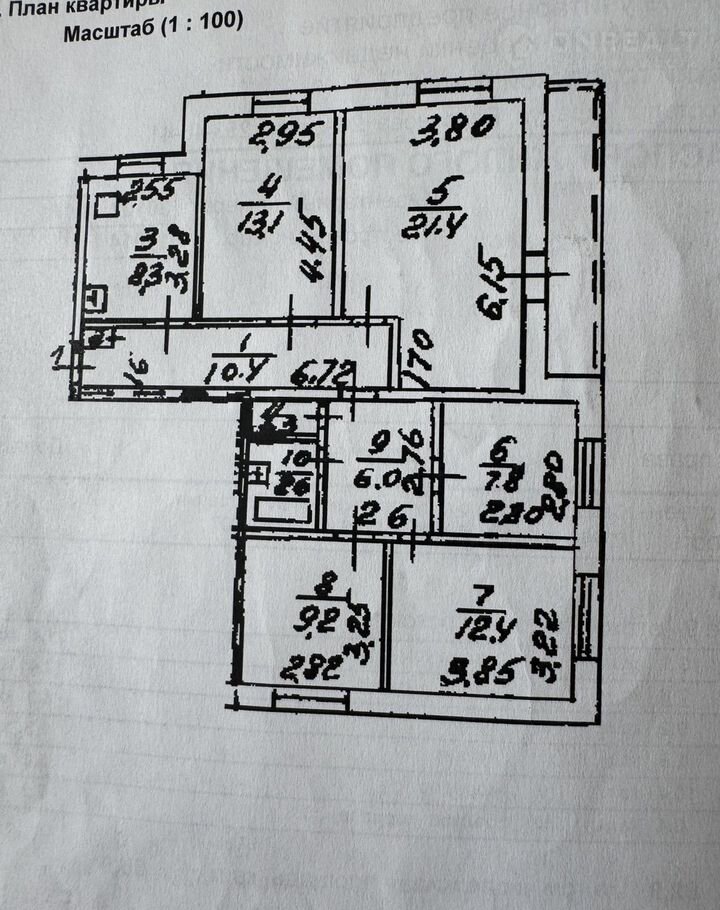 . План квартиры
Масштаб (1 : 100)
2,95
3.80
2,55
4
13,1
5
21.4
3
8,3
3,28
4.45
6,15
1
1
10.4
6.72
1,70
9
6.0
2,76
2 6
6
7.8
2,80
2,80
10
2,6
8
9.2
3,25
2,82
7
12.4
3,22
3,85